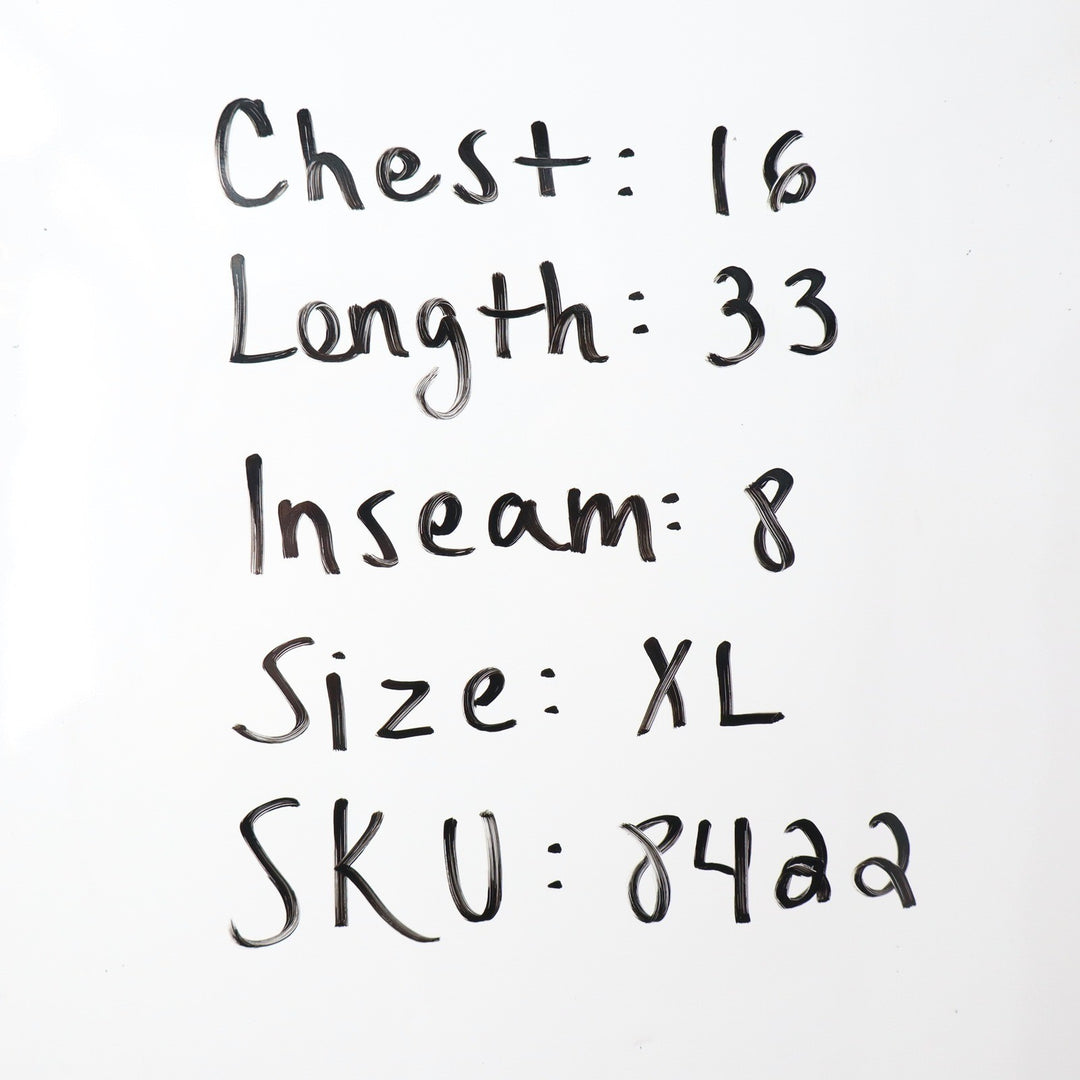 Chest: 16
Length: 33
Inseam: 8
Size: XL
SKU: 8422